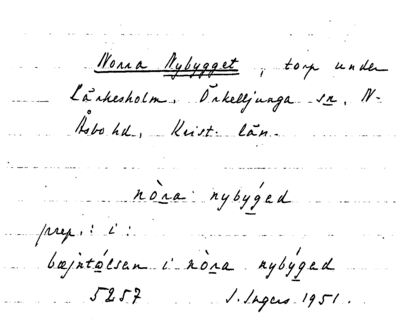 Norra Nybygget, torp under
Lärkesholm, Örkelljunga sn, N-
Åsbo hd, Krist. län.
nò̱ra nybý̱ged
prep.: i:
bæjntólsen i nò̱ra nybý̱ged
5257 J. Ingers 1951.